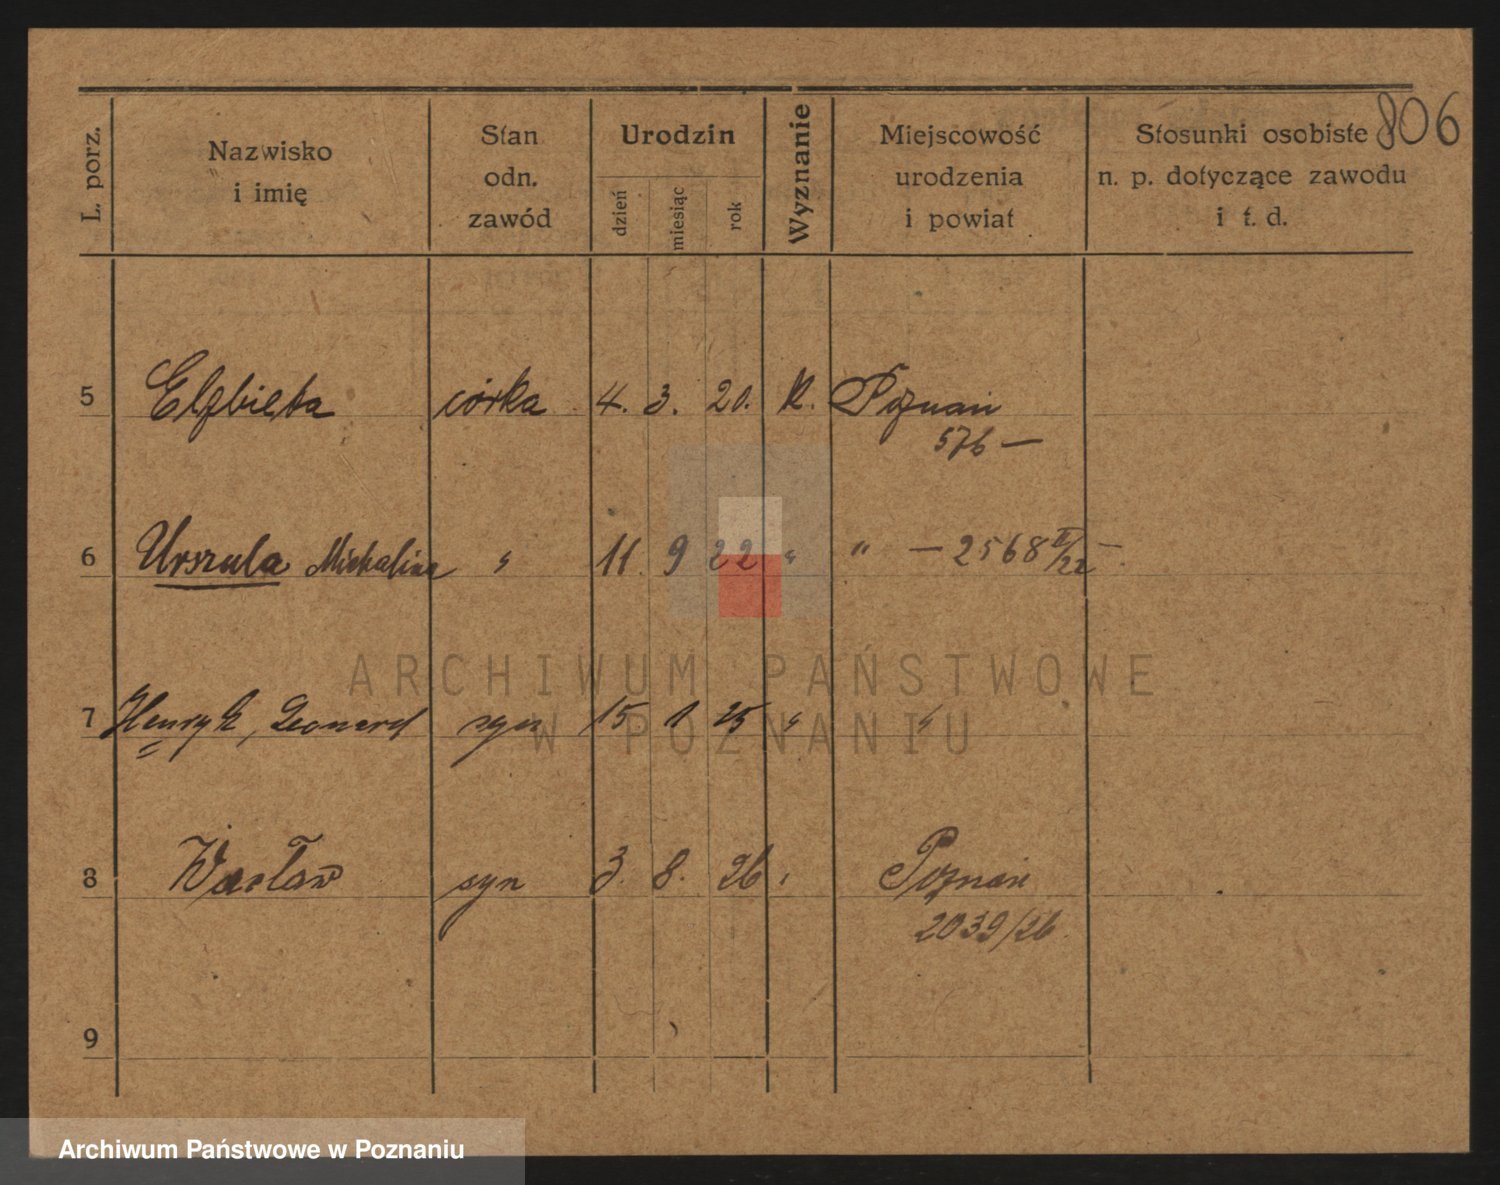 806
L. porz.
Nazwisko
i imię
Stan
odn.
zawód
Urodzin
dzień
miesiąc
rok
Wyznanie
Miejscowość
urodzenia
i powiat
Stosunki osobiste
n. p. dotyczące zawodu
i t. d.
5 Elżbieta córka 4. 3. 20. K. Poznań
576 —
6 Urszula Michalina " 11 9 22 " " — 2568 II/22 —
7 Henryk, Leonard syn 15 1 25 " "
8 Wacław syn 3. 8. 26 " Poznań
2039/26.
9
ARCHIWUM PAŃSTWOWE
W POZNANIU
Archiwum Państwowe w Poznaniu